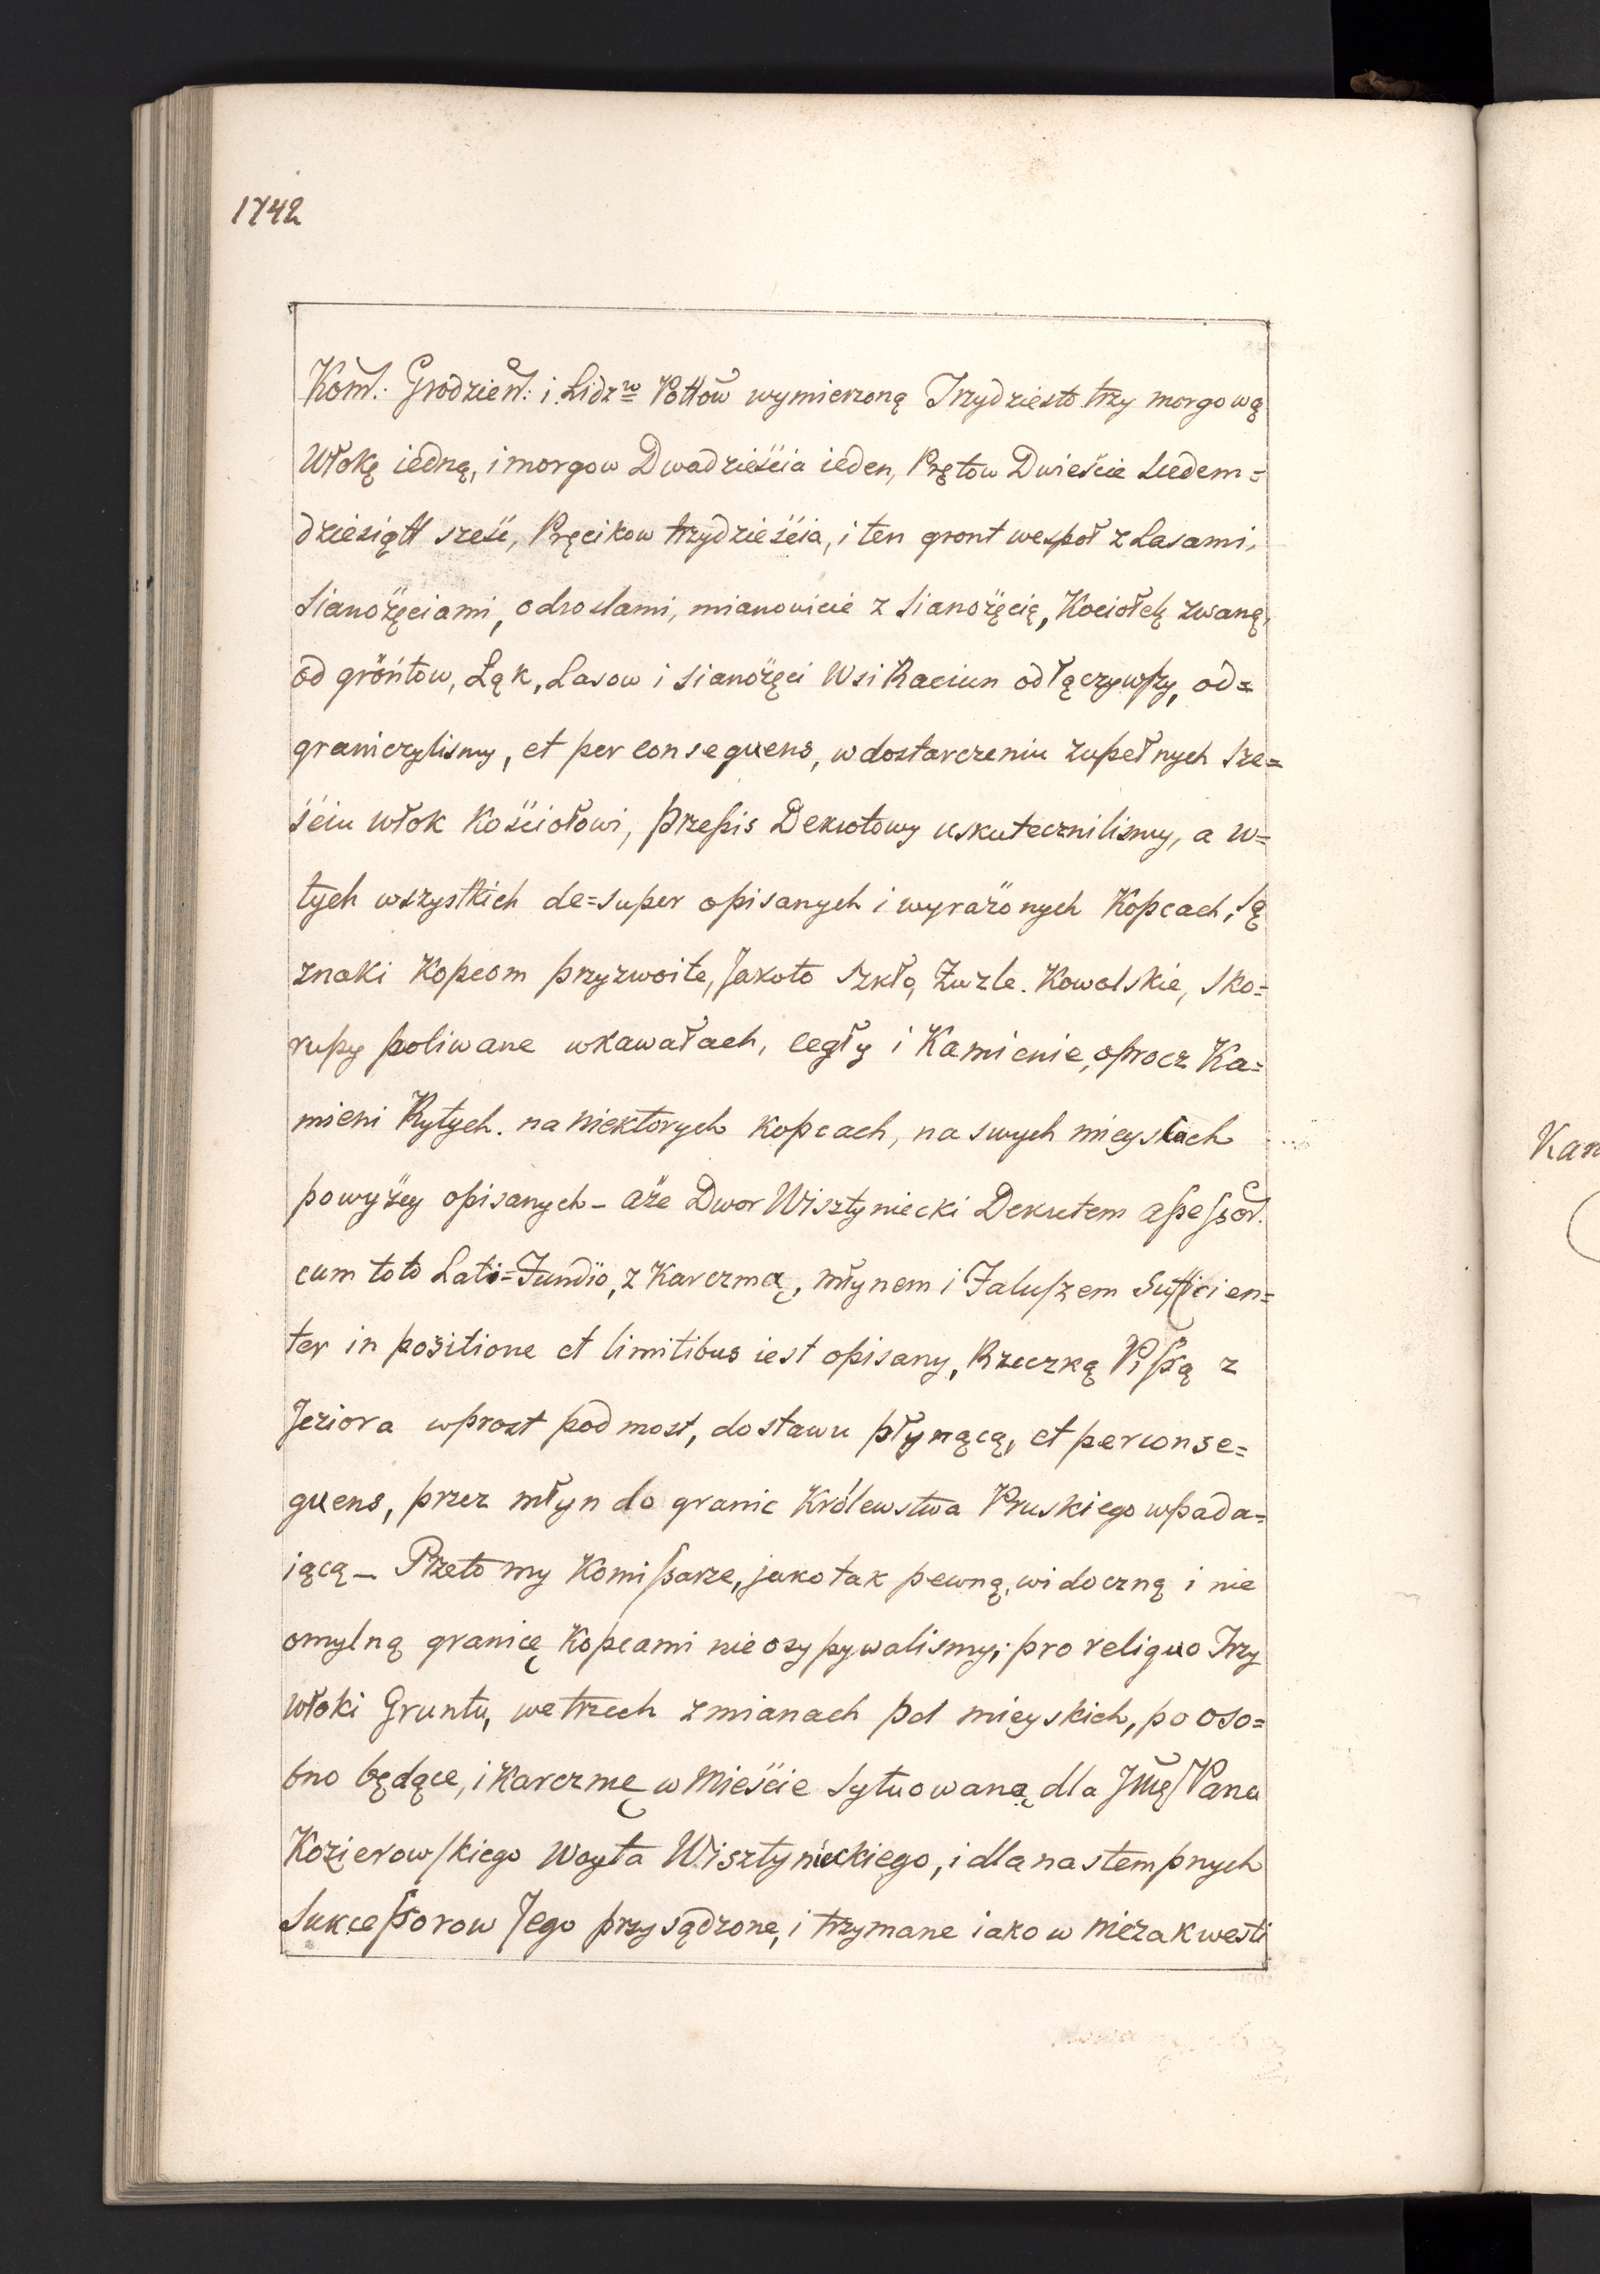 1742
Kom̃: Grodzień: i Lidzᵒ Pottow wymierzoną Trzydziesto trzy morgową
Włokę iedną, i morgow Dwadzieścia ieden, Prętow Dwieście siedem=
dziesiątt sześć, Pręcikow trzydzieścia, i ten gront wespoł z Lasami,
Sianożęciami, odroslami, mianowicie z Sianożęcią, Kociołelą zwaną,
od gróntow, Łąk, Lasow i sianożęci Wsi Raciun odłączywszy, od=
graniczylismy, et per consequens, w dostarczeniu zupełnych Sze=
sciu włok Kościołowi, przepis Dekretowy uskutecznilismy, a w=
tych wszystkich de=super opisanych i wyrażonych Kopcach, są
znaki Kopcom przyzwoite, Jakoto Szkło, Żuzle. Kowalskie, Sko=
rupy poliwane wkawałach, cegły i Kamienie, oprocz Ka=
mieni Rytych. na niektorych Kopcach, na swych mieyscach
powyżey opisanych – aże Dwor Wisztyniecki Dekretem aßeßor.
cum toto Lati=Fundio, z Karczmą, młynem i Faluszem Sufficien=
ter in positione et limitibus iest opisany, Rzeczką Pißą z
Jeziora wprost pod most, do stawu płynącą, et perconse=
quens, przez młyn do granic Królewstwa Pruskiego wpada=
iącą – Przeto my Komißarze, jako tak pewną, widoczną i nie
omylną granicę Kopcami nie osypywalismy; pro reliquo Trzy
włoki Gruntu, we trzech zmianach pol mieyskich, po oso=
bno będące, i Karczmę w Mieście Sytuowaną dla Jmę Pana
Kozierowskiego Woyta Wisztynieckiego, i dla nastempnych
Sukceßorow Jego przysądzone, i trzymane iako w niezakwesti
Kam